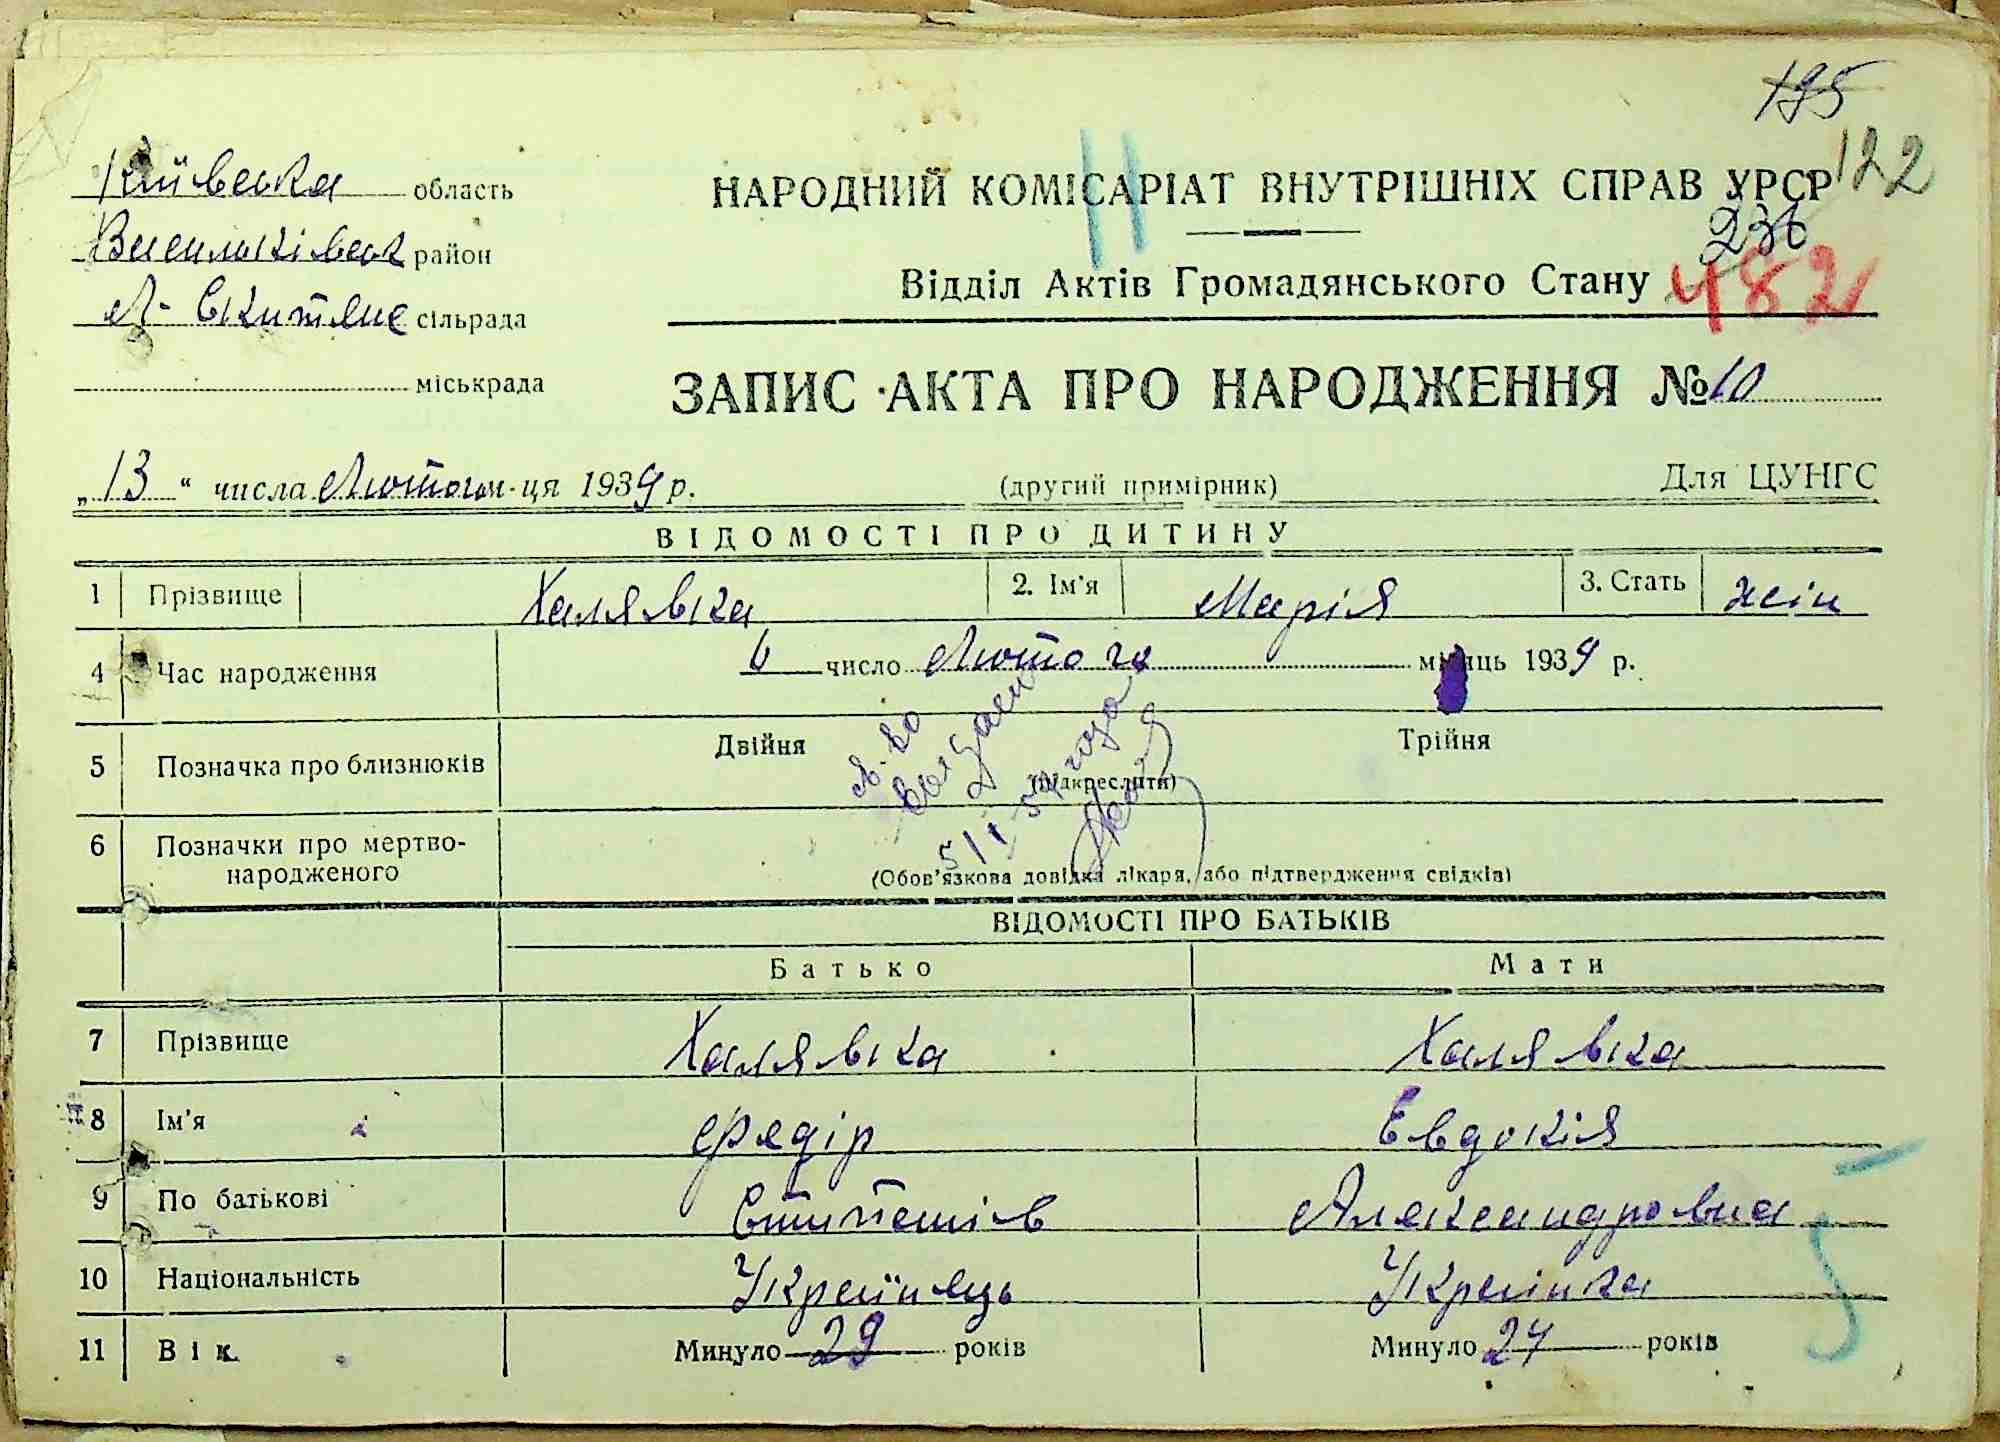 195
122
Київська область
Васильківськ район
сільрада
міськрада
НАРОДНИЙ КОМІСАРІАТ ВНУТРІШНІХ СПРАВ УРСР
236
Відділ Актів Громадянського Стану 482
ЗАПИС АКТА ПРО НАРОДЖЕННЯ № 10
„13“ числа Лютого м-ця 1939 р. (другий примірник) Для ЦУНГС
ВІДОМОСТІ ПРО ДИТИНУ
1 Прізвище Халявка 2. Ім'я Марія 3. Стать жін
4 Час народження 6 число Лютого місяць 1939 р.
5 Позначка про близнюків Двійня Трійня
(підкреслити)
6 Позначки про мертво-
народженого
(Обов'язкова довідка лікаря, або підтвердження свідків)
ВІДОМОСТІ ПРО БАТЬКІВ
Батько Мати
7 Прізвище Халявка Халявка
8 Ім'я Федір Евдокія
9 По батькові Александровна
10 Національність Українець Українка
11 Вік Минуло 29 років Минуло 27 років